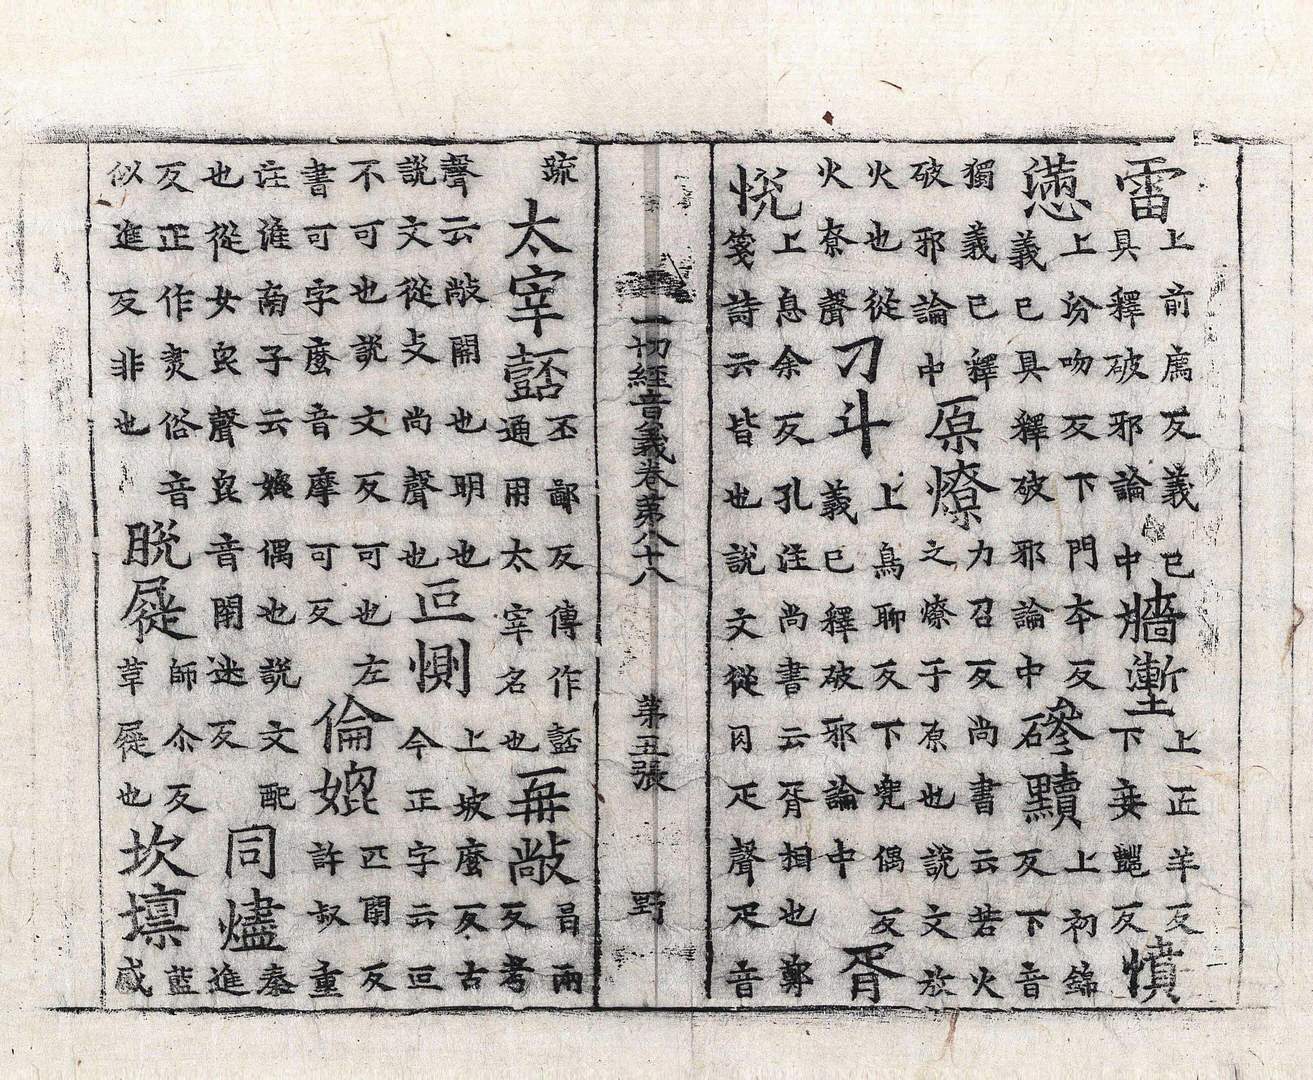 雷上前廌反義已具釋破邪論中牆塹上正羊反下妾豔反憤
懣上汾吻反下門本反義已具釋破邪論中磣黷上初錦反下音
獨義已釋破邪論中原燎力召反尚書云若火之燎于原也說文放
火也從火尞聲刁斗上鳥聊反下兜偶反義已釋破邪論中胥
悅上息余反孔注尚書云胥相也鄭箋詩云皆也說文從月疋聲疋音
一切經音義卷第八十八 第五張 野
疏太宰嚭丕鄙反傳作嚭通用太宰名也再敞昌兩反考
聲云敞開也明也說文從攴尚聲也叵惻上坡麼反古今正字云叵
不可也說文反可也左書可字麼音摩可反倫媲匹閉反許叔重
注淮南子云媲偶也說文配也從女𣬉聲𣬉音閉迷反同燼秦進
反正作㶳俗音似進反非也脫屣師尒反草屣也坎壈藍感